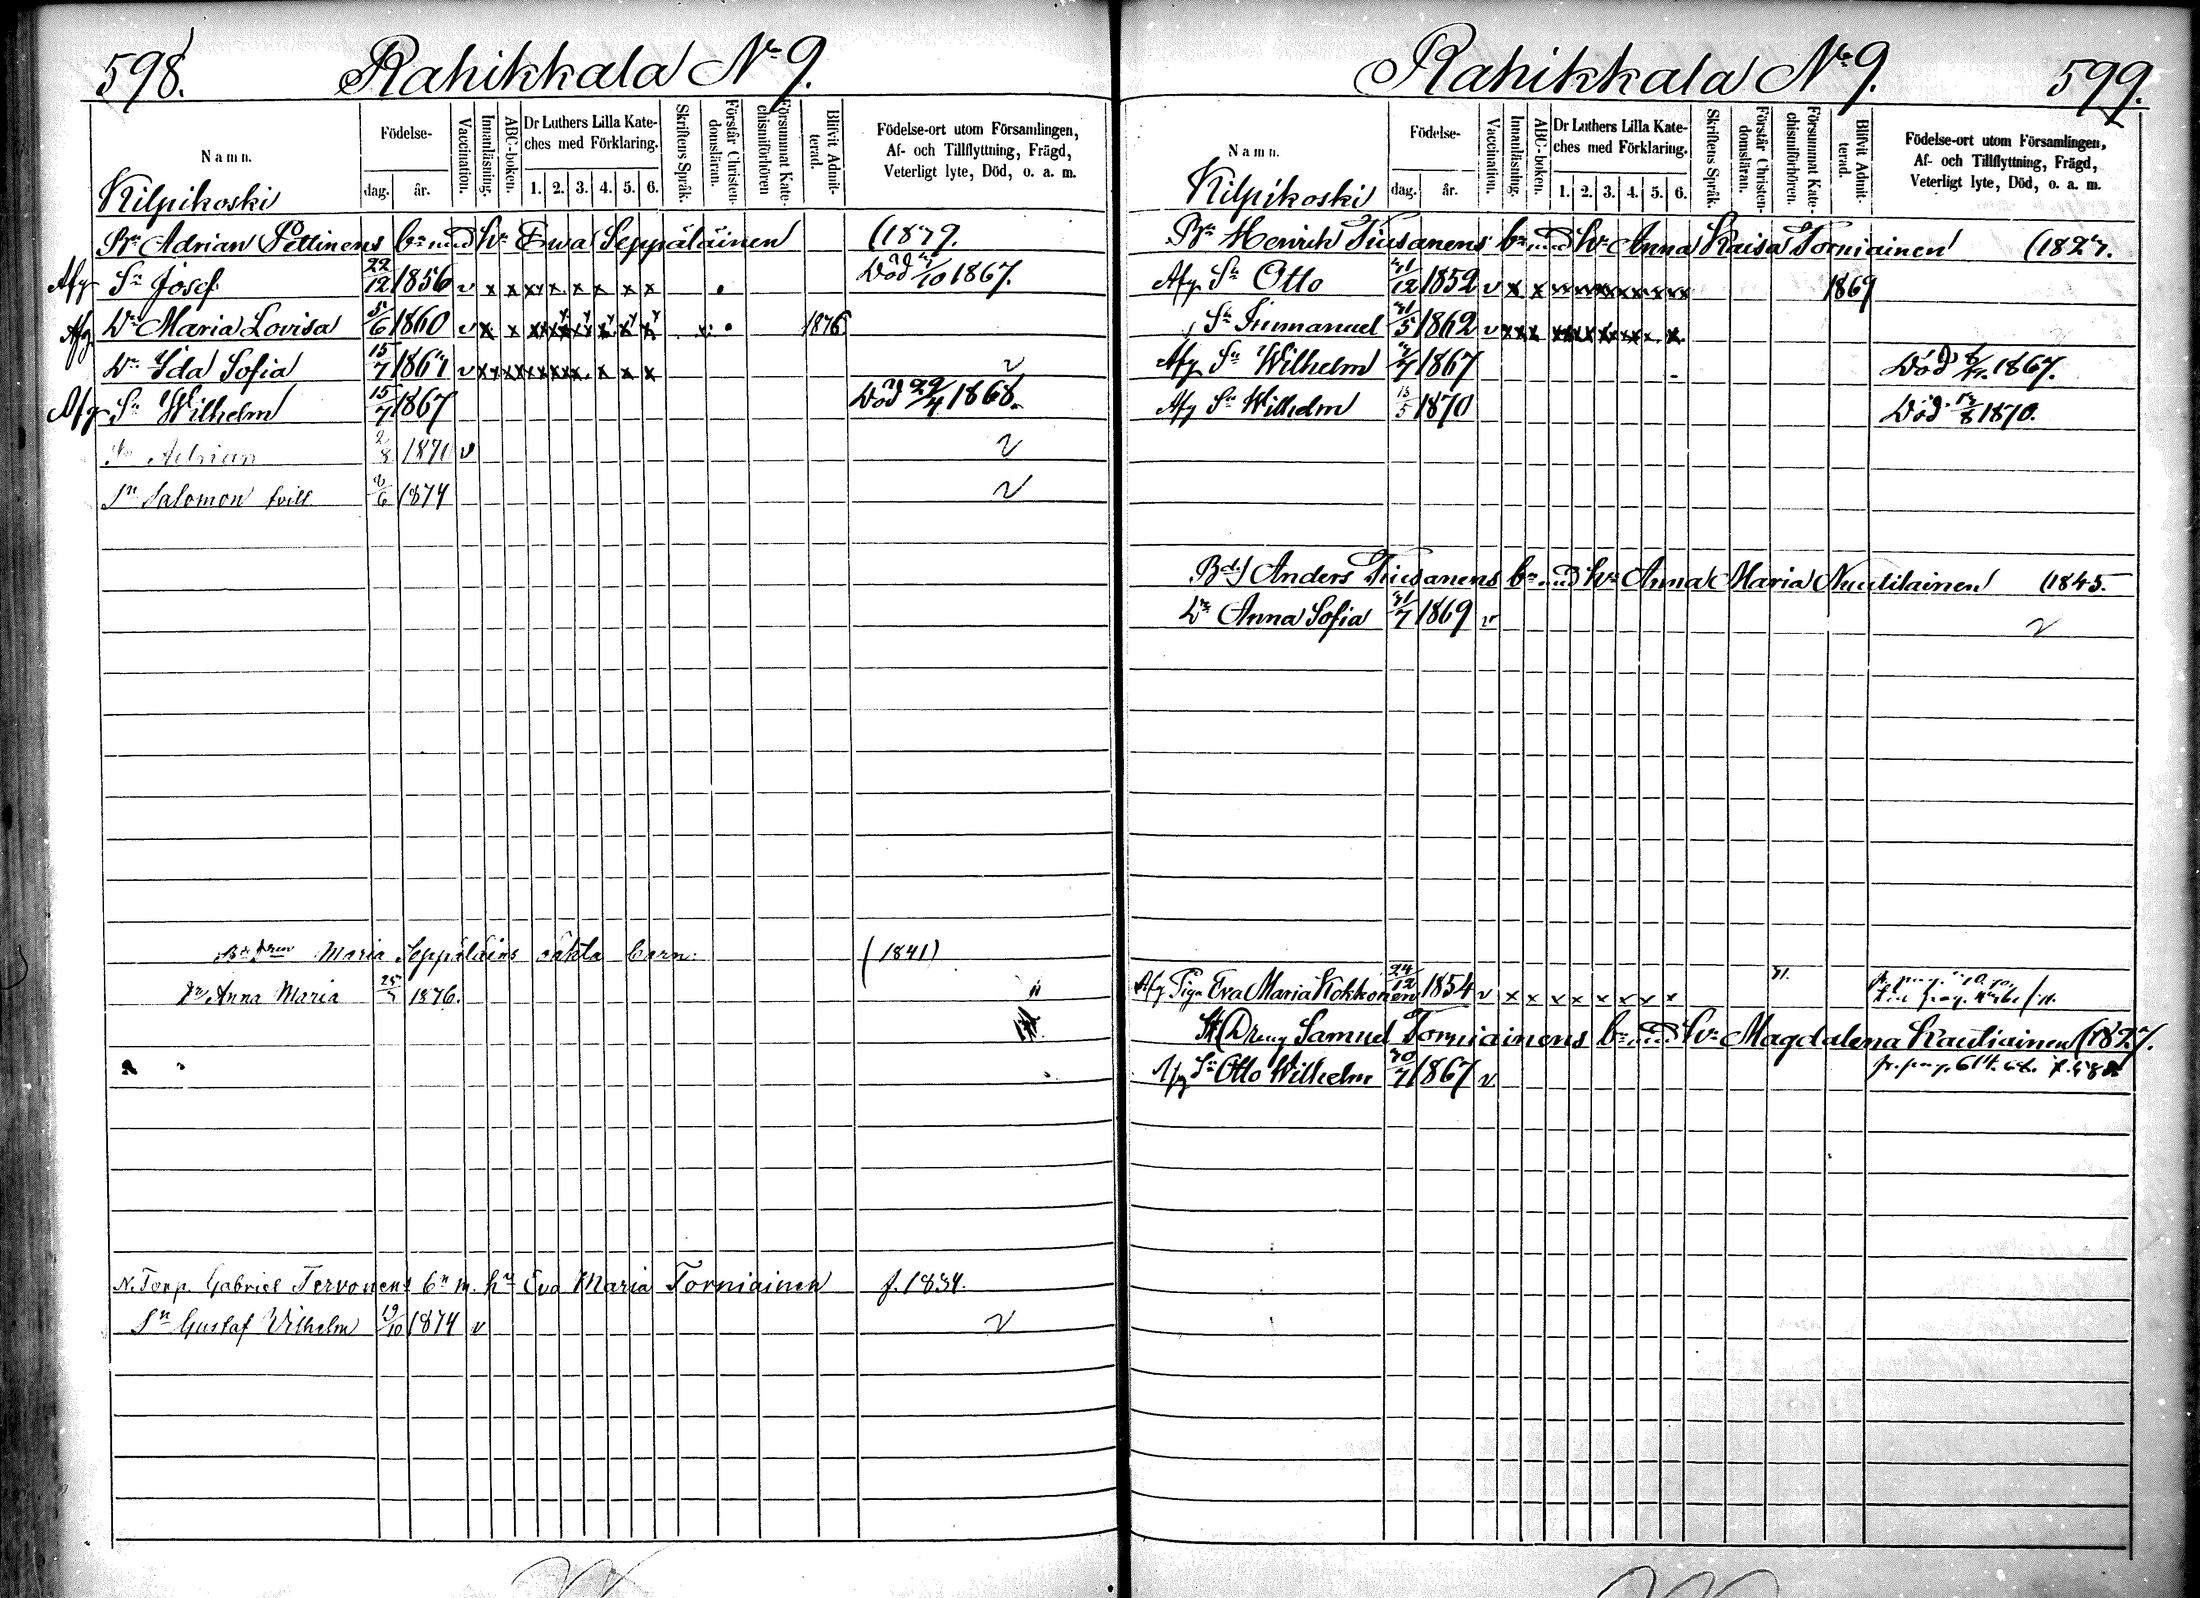 598.
Rahikkala No 9.
Namn.
Födelse-
dag.
år.
Vaccination.
Innanläsning.
ABC-boken.
Dr Luthers Lilla Kate-
ches med Förklaring.
1. 2. 3. 4. 5. 6.
Skriftens Språk.
Förstår Christen-
domsläran.
Försummat Kate-
chismiförhören
Blifvit Admit-
terad.
Födelse-ort utom Församlingen,
Af- och Tillflyttning, Frägd,
Veterligt lyte, Död, o. a. m.
Kilpikoski
Bn Adrian Pettinens bn med hu Ewa Seppäläinen (1839.
Afg Sn Josef 22/12 1856 v x x x x x x x x Död /10 1867.
Afg Dr Maria Lovisa 5/6 1860 v 1876
Dr Ida Sofia 15/7 1864 v
Afg Sn Wilhelm 15/7 1867 Död 22/4 1868.
Sn Adrian 2/8 1870 v
Sn Salomon tvill 8/6 1874
Maria Seppäläins oäkta barn. (1841)
Dr Anna Maria 25/7 1876.
N. Torp. Gabriel Tervonens bn m. hu Eva Maria Torniainen f. 1834.
Sn Gustaf Wilhelm 19/10 1874 v
Rahikkala No 9.
599.
Namn.
Födelse-
dag.
år.
Vaccination.
Innanläsning.
ABC-boken.
Dr Luthers Lilla Kate-
ches med Förklaring.
1. 2. 3. 4. 5. 6.
Skriftens Språk.
Förstår Christen-
domsläran.
Försummat Kate-
chismiförhören.
Blifvit Admit-
terad.
Födelse-ort utom Församlingen,
Af- och Tillflyttning, Frägd,
Veterligt lyte, Död, o. a. m.
Kilpikoski
Bn Henrik Tiusanens bn med hu Anna Kaisa Torniainen (1827.
Afg Sn Otto 31/12 1852 v 1869
Sn Immanuel 31/5 1862 v
Afg Sn Wilhelm /7 1867 Död 1867.
Afg Sn Wilhelm 13/5 1870 Död 13/8 1870.
Anders Tiusanens bn med hu Anna Maria Nuutilainen (1845.
Dr Anna Sofia 31/7 1869 v
Afg Pig. Eva Maria Kokkonen 24/12 1854 v x x x x x x x x
Dreng Samuel Torniainens bn med hu Magdalena Rautiainen (1827.
Afg Sn Otto Wilhelm 30/7 1867 v fr. pag. 614.